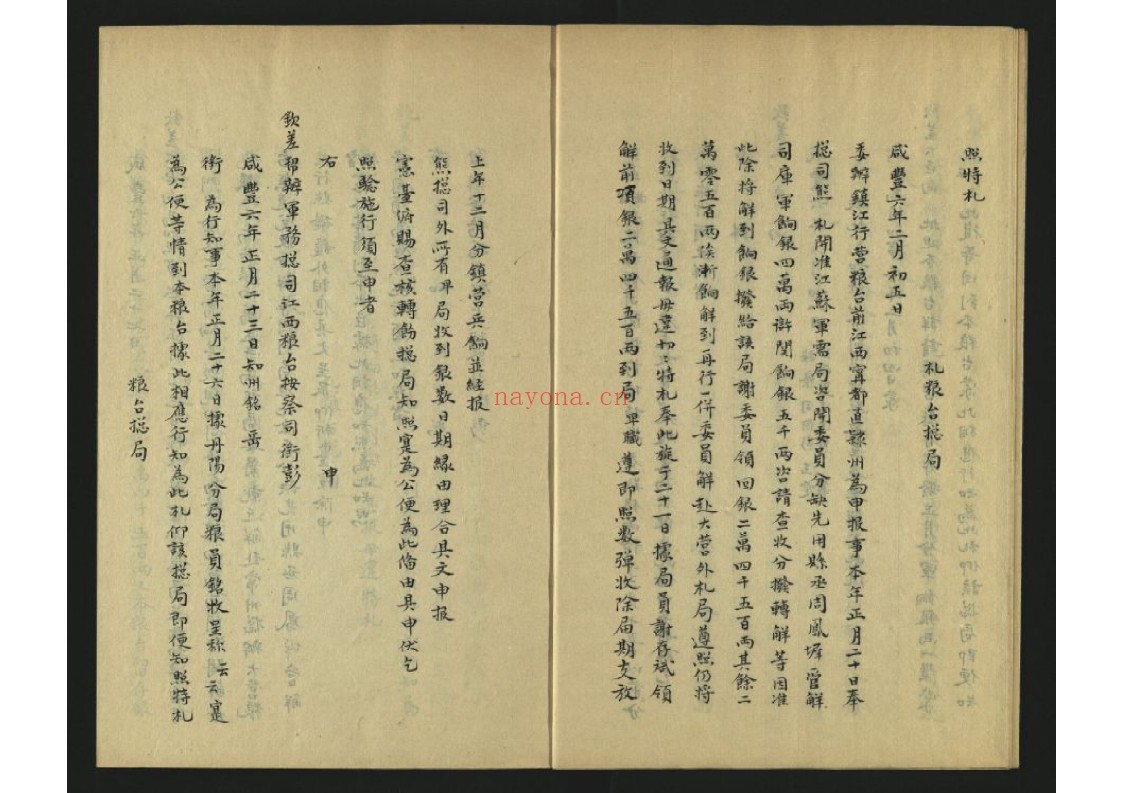 照特札
札粮台搃局
咸豐六年二月初五日
委辦鎮江行营粮台前江西寗都直隸州為申报事本年正月二十日奉
搃司熊 札開准江蘇軍需局咨開委員分缺先用縣丞周鳳墀管解
司庫軍餉銀四萬两滸関餉銀五千两咨請查收分撥轉解等因准
此除将解到餉銀撥給該局謝委員領回銀二萬四千五百两其餘二
萬零五百两俟淅餉解到再行一併委員解赴大营外札局遵照仍将
收到日期具文通報毋違切切特札奉此旋于二十一日據局員謝存斌領
解前項銀二萬四千五百两到局卑職遵即照数弹收除屆期支放
上年十二月分鎮营兵餉並経报
熊搃司外所有卑局收到銀数日期緣由理合具文申报
憲臺俯賜查核轉飭搃局知照寔為公便為此偹由具申伏乞
照騐施行須至申者
右 申
欽差帮辦軍務搃司江西粮台按察司銜彭
咸豐六年正月二十三日知州銘岳
銜 為行知事本年正月二十六日據丹陽分局粮員銘牧呈称云云寔
為公便等情到本粮台據此相應行知為此札仰該搃局即便知照特札
粮台搃局
nayona.cn